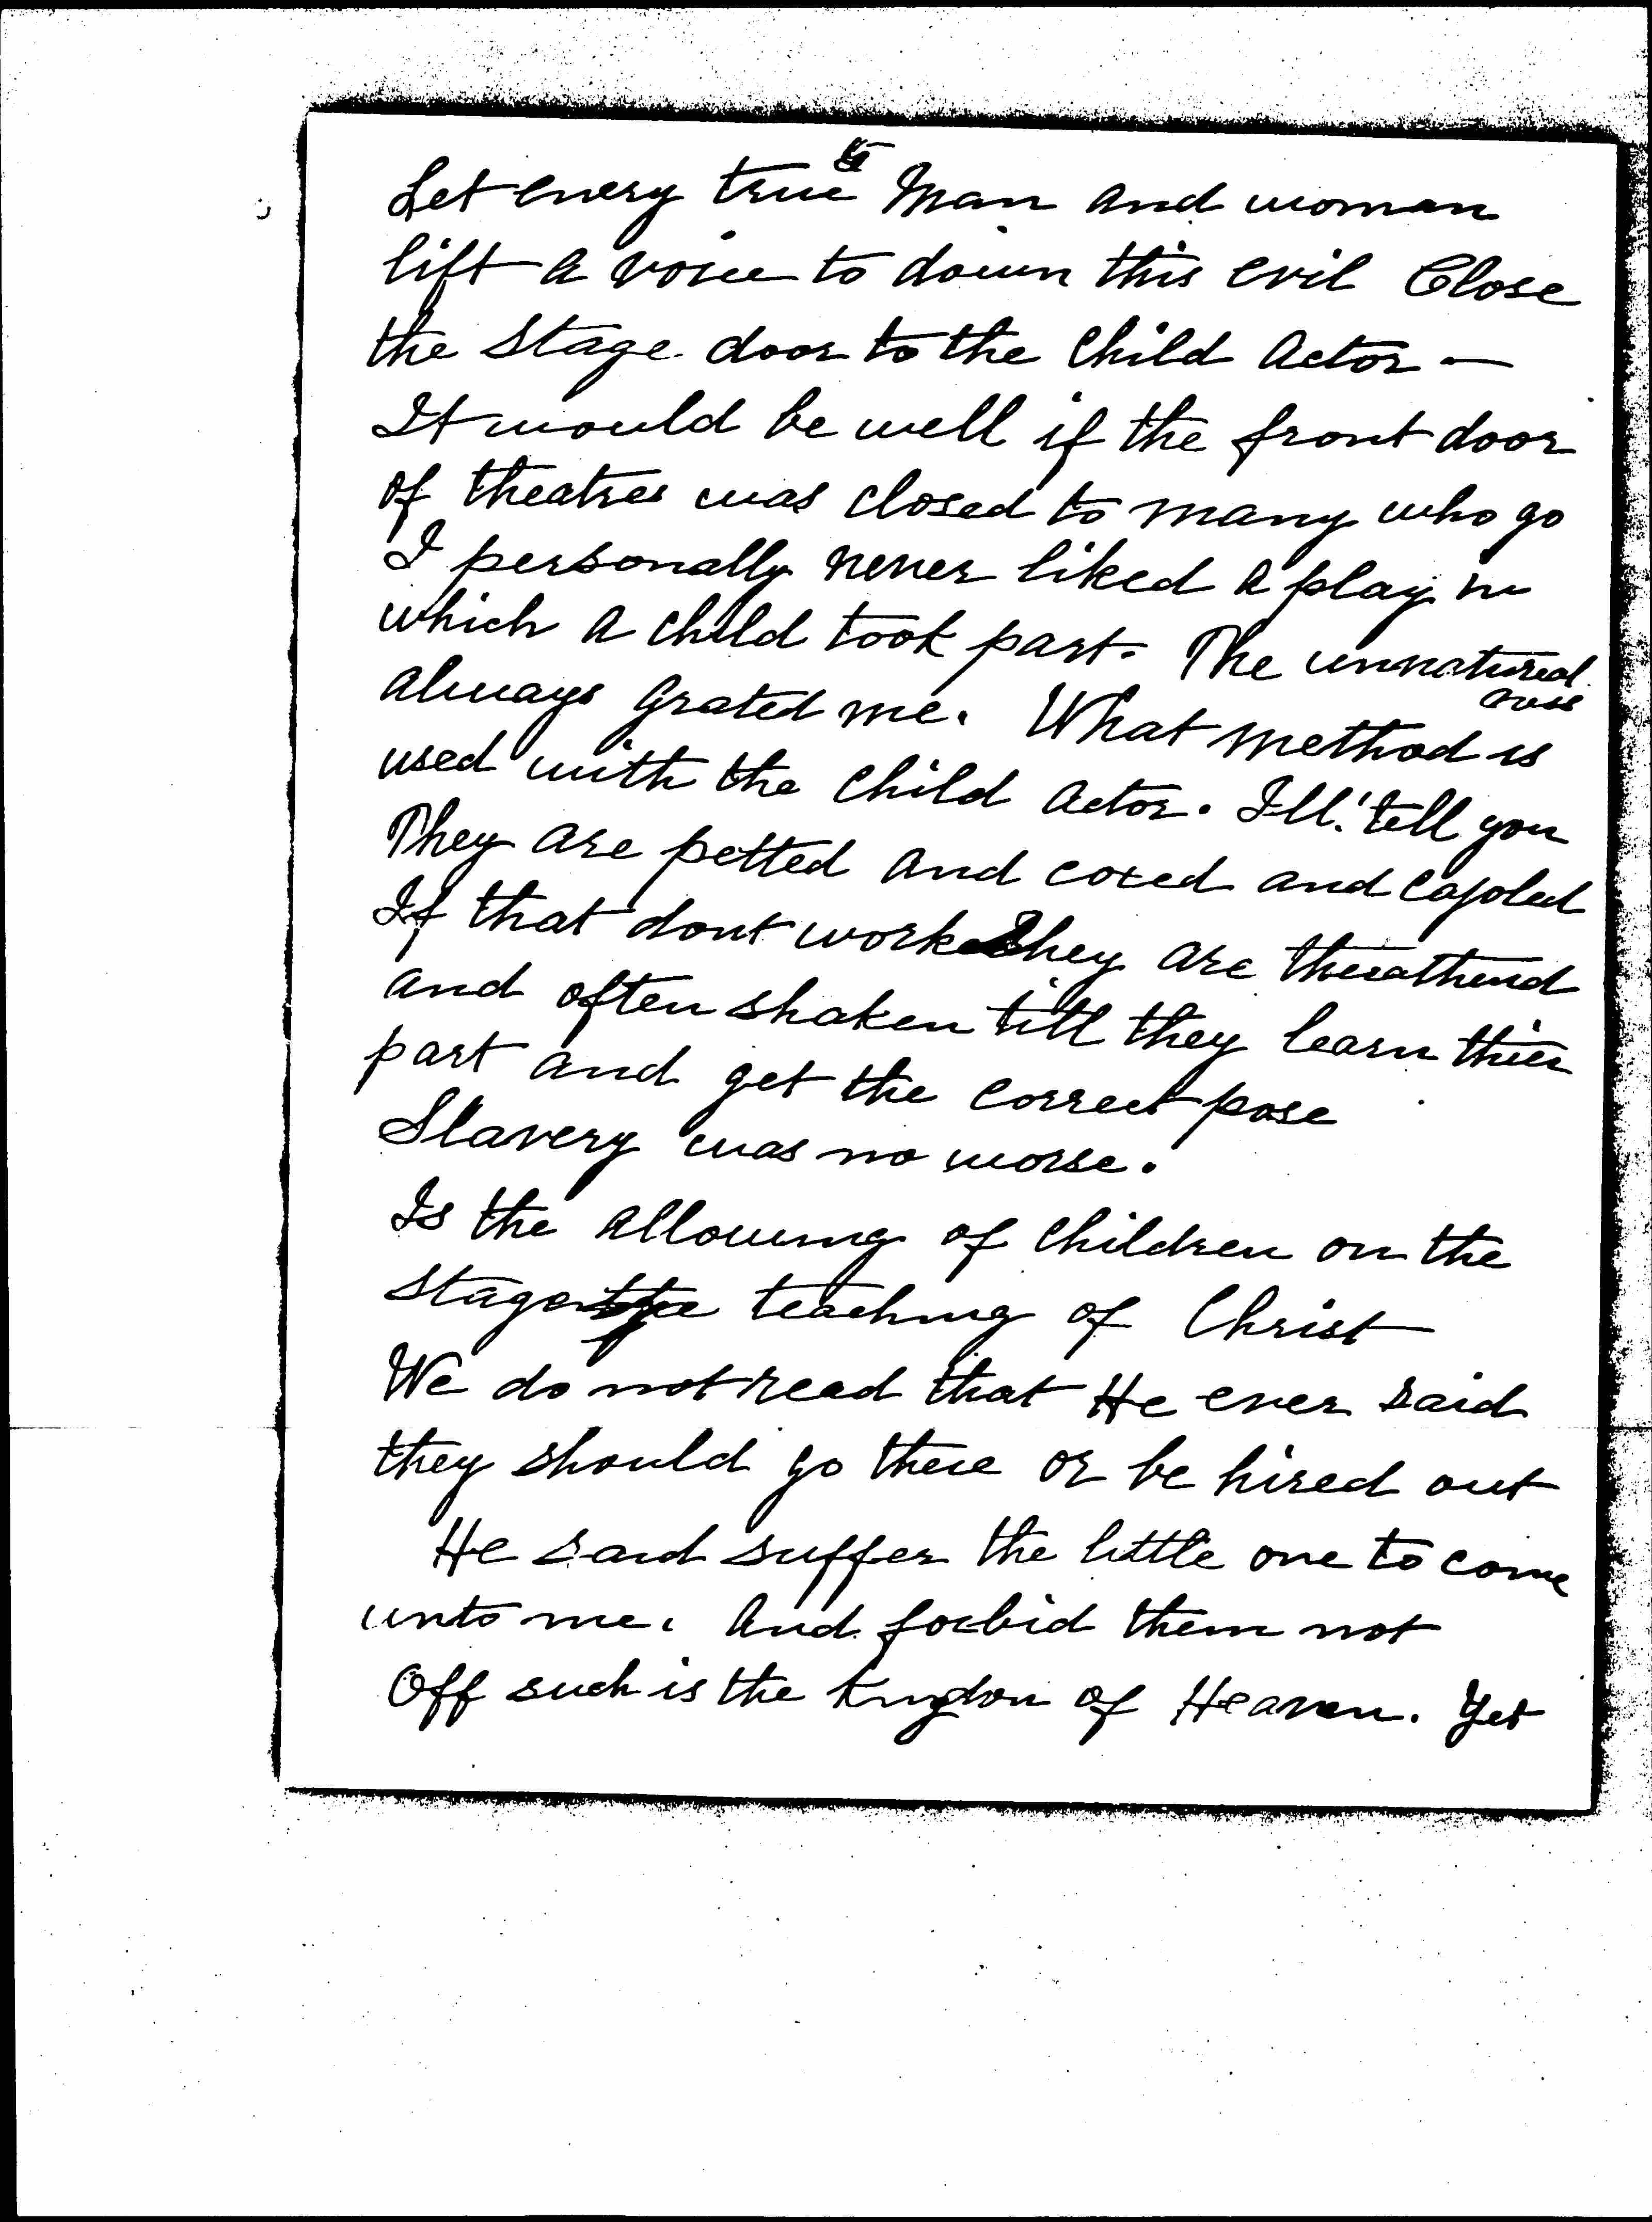 5
Let every true Man and woman
lift a voice to down this evil Close
the Stage door to the Child Actor –
It would be well if the front door
of theatres was closed to many who go
I personally never liked a play in
which a child took part. The unnatural
ness
always grated me. What method is
used with the Child Actor. Ill' tell you
They are petted and coxed and cajoled
If that dont work They are threathend
and often shaken till they learn thier
part and get the correct pose
Slavery was no worse.
Is the allowing of Children on the
Stage the teaching of Christ
We do not read that He ever said
they should go there or be hired out
He said suffer the little one to come
unto me. And forbid them not
Off such is the Kingdon of Heaven. Yet